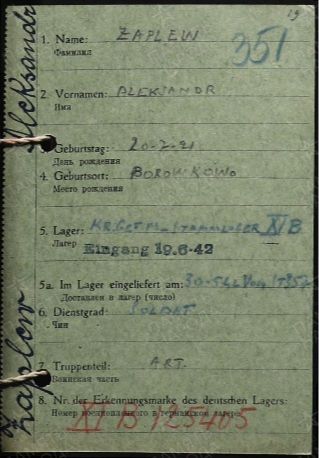 19
1. Name: ZAPLEW 351
Фамилия
2. Vornamen: ALEKSANDR
Имя
3. Geburtstag: 20-2-21
День рождения
4. Geburtsort: BOROWKOWO
Место рождения
5. Lager: KR.GEF.M.-STAMMLAGER XI B
Лагер
Eingang 19.6-42
5a. Im Lager eingeliefert am: 30-5-42
Доставлен в лагер (число)
6. Dienstgrad: SOLDAT
Чин
7. Truppenteil: ART.
Воинская часть
8. Nr. der Erkennungsmarke des deutschen Lagers:
Номер военнопленного в германском лагере
XI B 125405
Zaplew Aleksandr